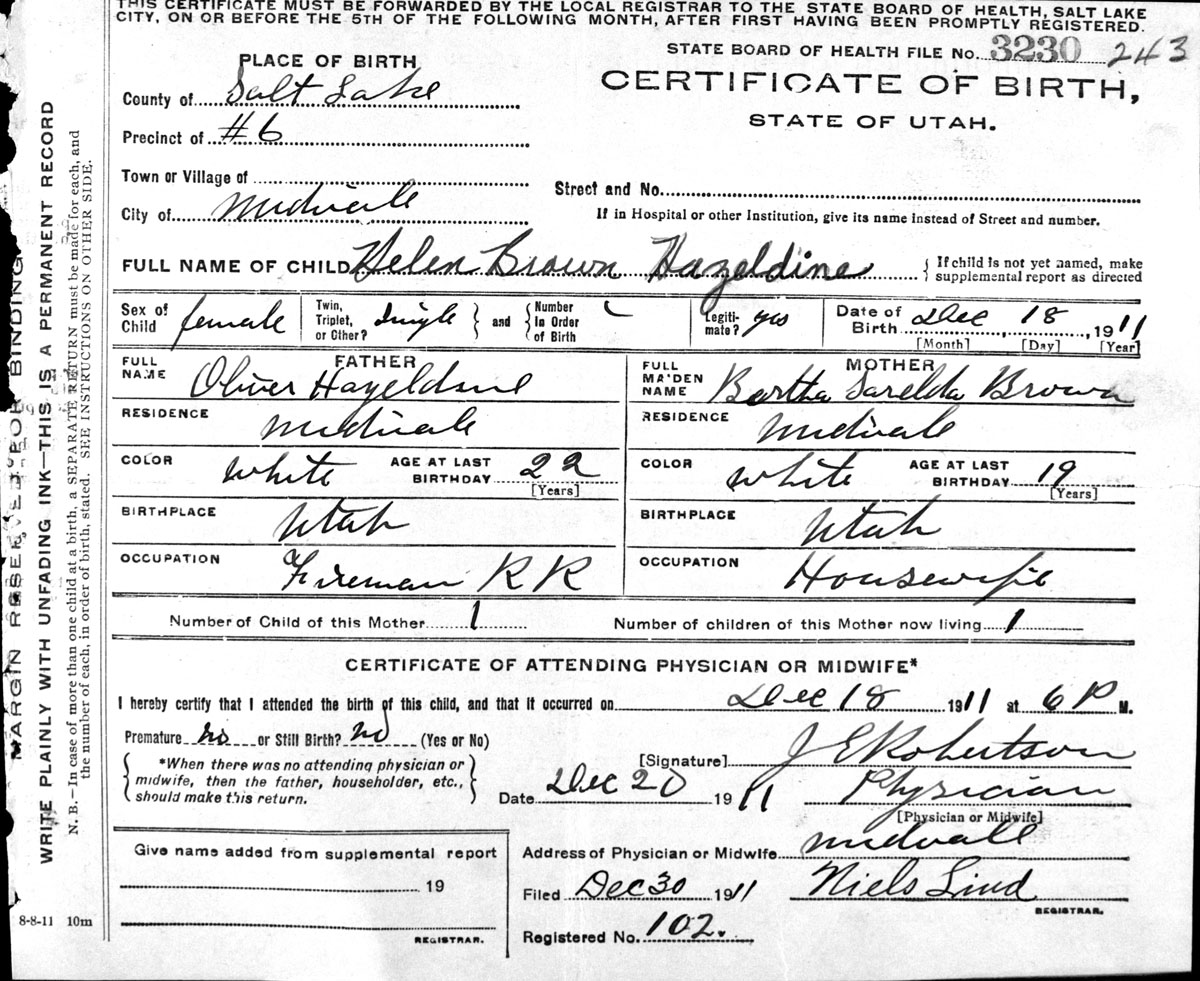 THIS CERTIFICATE MUST BE FORWARDED BY THE LOCAL REGISTRAR TO THE STATE BOARD OF HEALTH, SALT LAKE
CITY, ON OR BEFORE THE 5TH OF THE FOLLOWING MONTH, AFTER FIRST HAVING BEEN PROMPTLY REGISTERED.
STATE BOARD OF HEALTH FILE No. 3230 243
PLACE OF BIRTH
CERTIFICATE OF BIRTH,
STATE OF UTAH.
County of Salt Lake
Precinct of #6
Town or Village of
City of Midvale
Street and No.
If in Hospital or other Institution, give its name instead of Street and number.
FULL NAME OF CHILD Helen Brown Hazeldine
{ If child is not yet named, make
supplemental report as directed
Sex of Child female
Twin, Triplet, or Other? single } and { Number In Order of Birth
Legitimate? yes
Date of Birth Dec 18, 1911
[Month] [Day] [Year]
FATHER
FULL NAME Oliver Hazeldine
RESIDENCE Midvale
COLOR White AGE AT LAST BIRTHDAY 22
[Years]
BIRTHPLACE Utah
OCCUPATION Fireman RR
MOTHER
FULL MAIDEN NAME Bertha Sarelda Brown
RESIDENCE Midvale
COLOR White AGE AT LAST BIRTHDAY 19
[Years]
BIRTHPLACE Utah
OCCUPATION Housewife
Number of Child of this Mother 1 Number of children of this Mother now living 1
CERTIFICATE OF ATTENDING PHYSICIAN OR MIDWIFE*
I hereby certify that I attended the birth of this child, and that it occurred on Dec 18 1911 at 6 P M.
Premature no or Still Birth? no (Yes or No)
{ *When there was no attending physician or
midwife, then the father, householder, etc.,
should make this return. }
[Signature] J E Robertson
Date Dec 20 1911 Physician
[Physician or Midwife]
Address of Physician or Midwife Midvale
Filed Dec 30 1911 Niels Lind
REGISTRAR.
Registered No. 102.
Give name added from supplemental report
19
REGISTRAR.
8-8-11 10m
MARGIN RESERVED FOR BINDING
WRITE PLAINLY WITH UNFADING INK—THIS IS A PERMANENT RECORD
N. B.—In case of more than one child at a birth, a SEPARATE RETURN must be made for each, and
the number of each, in order of birth, stated. SEE INSTRUCTIONS ON OTHER SIDE.